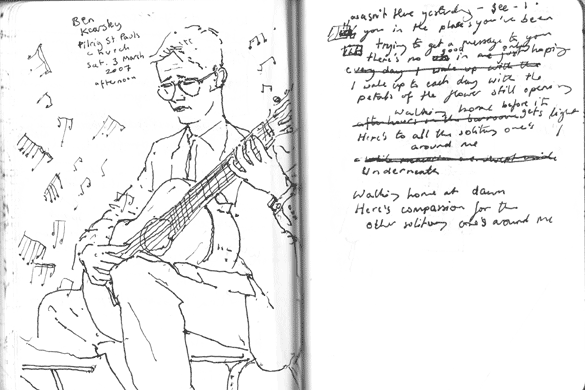 Ben
Kearsley
Pilrig St Pauls
Church
Sat. 3 March
2007
afternoon
wasn't there yesterday - see - I
you in the places you've been
trying to get a message to your
there's no good in me only hoping
every day I wake up with the
I wake up to each day with the
petals of the flower still opening
Walking home before it
after hours in the barroom gets light
Here's to all the solitary one's
around me
underneath
Walking home at dawn
Here's compassion for the
other solitary one's around me